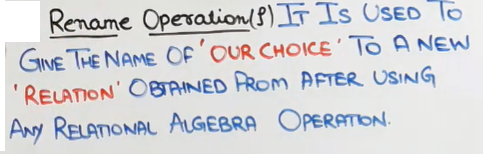 Rename Operation(ρ) IT IS USED TO
GIVE THE NAME OF 'OUR CHOICE' TO A NEW
'RELATION' OBTAINED FROM AFTER USING
ANY RELATIONAL ALGEBRA OPERATION.